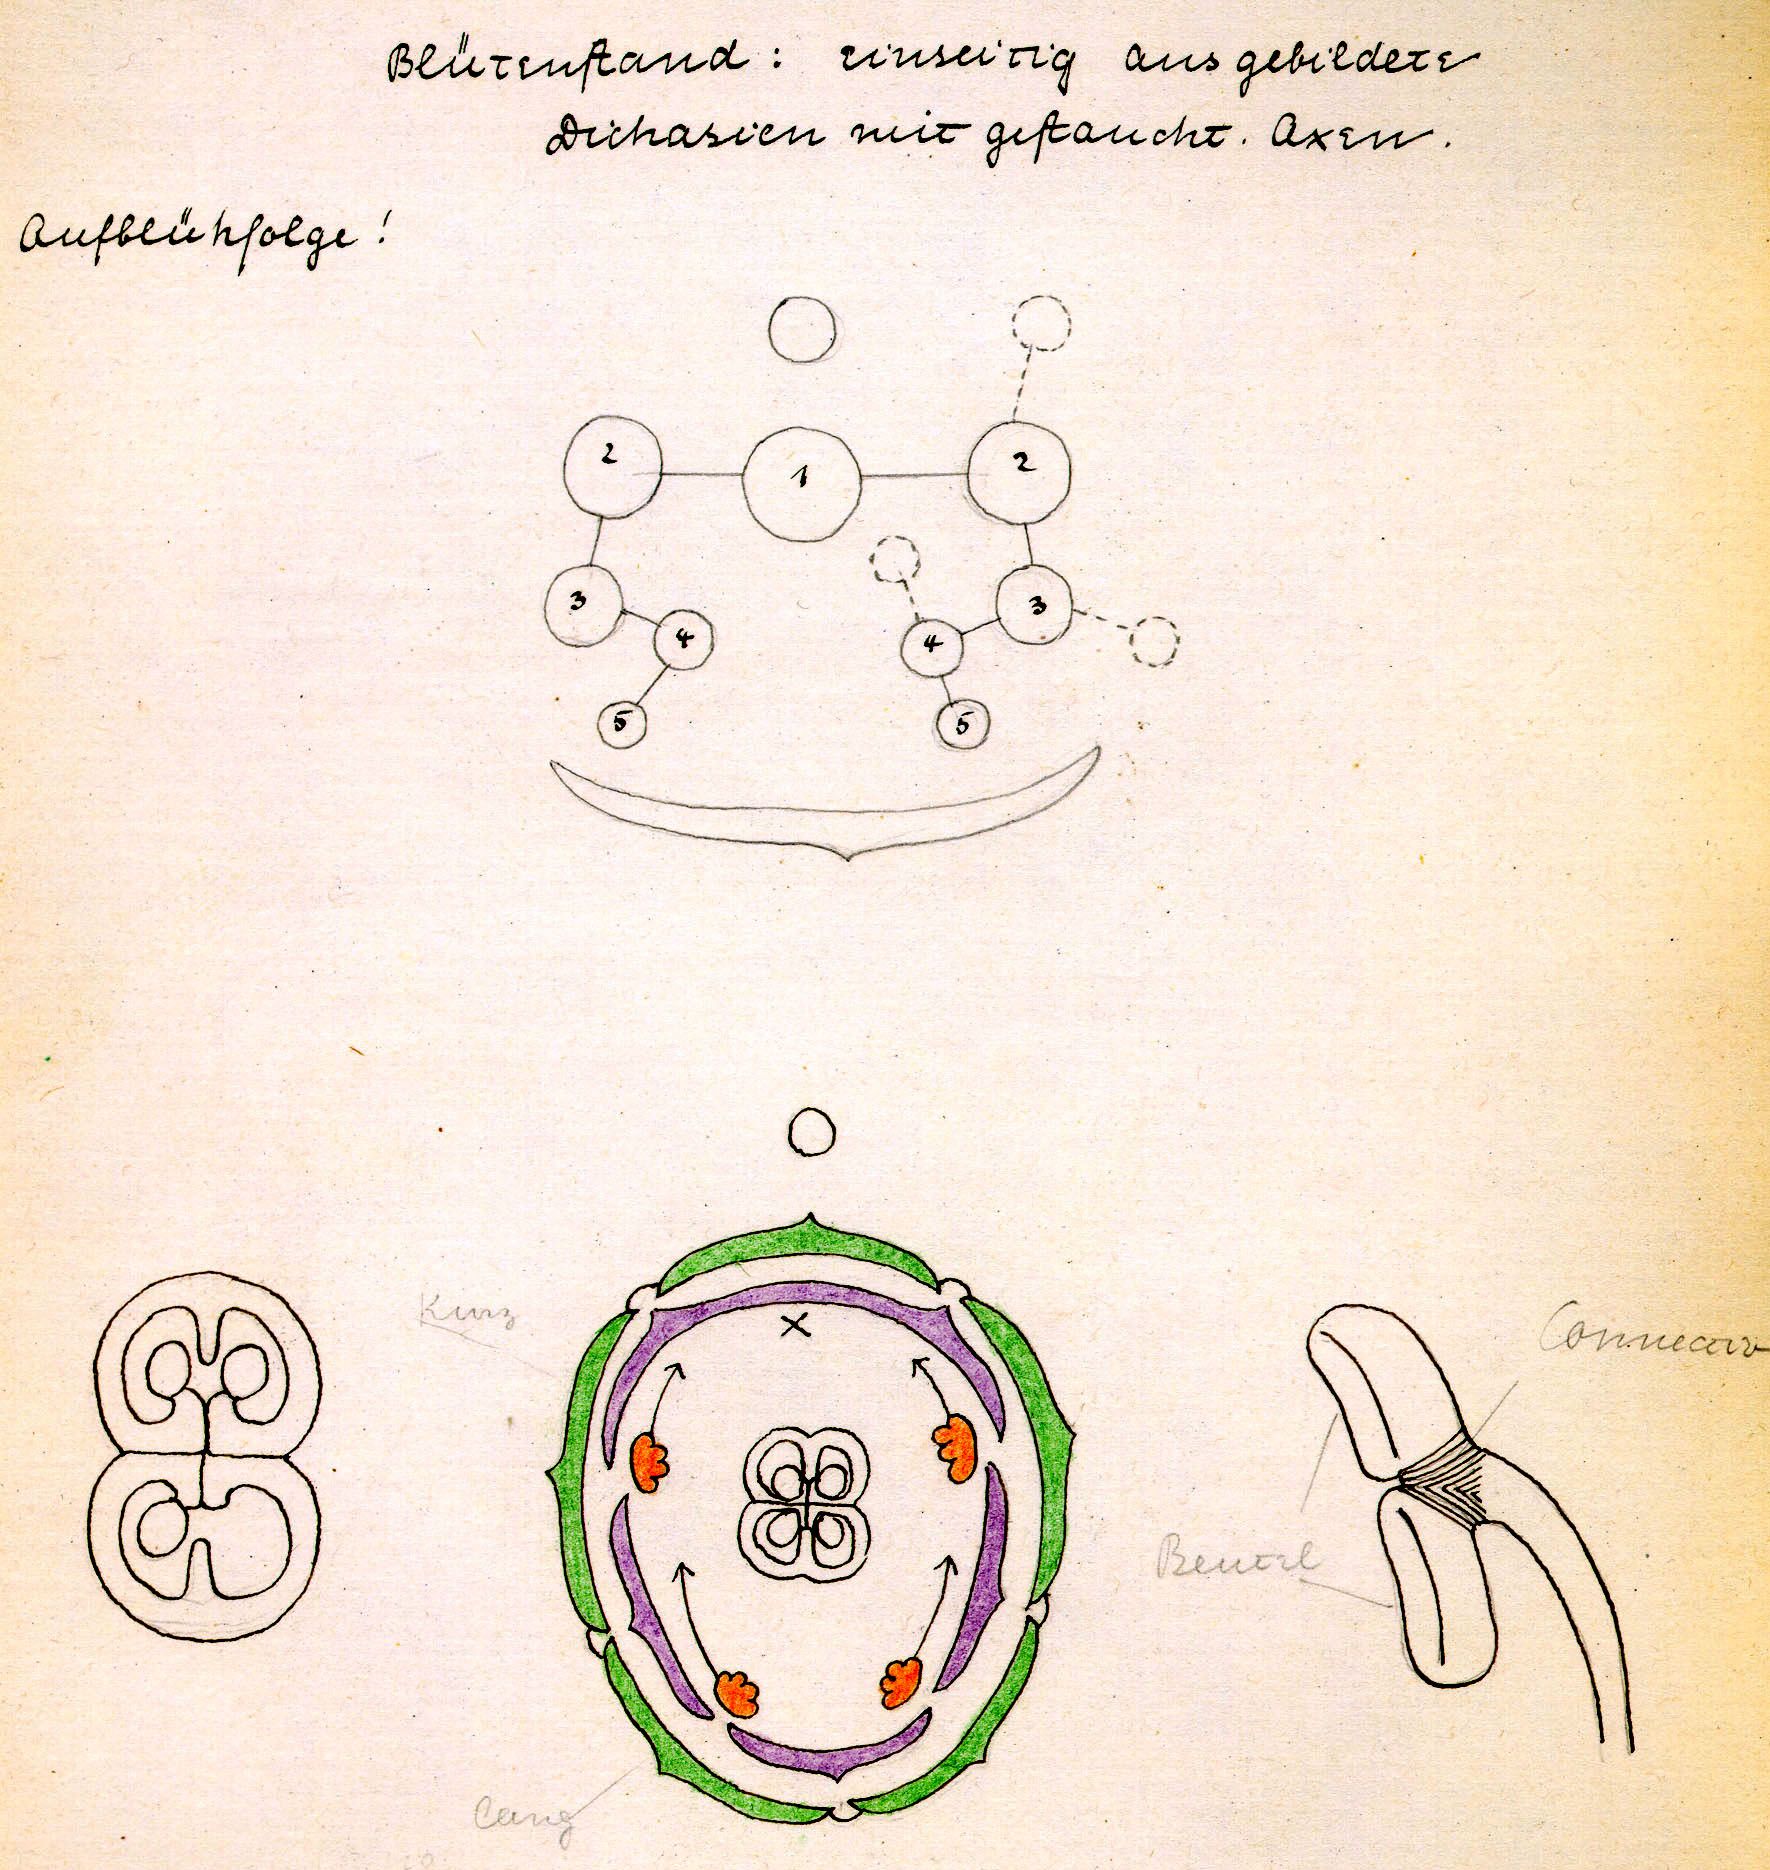 Blütenstand: einseitig ausgebildete
Dichasien mit gestaucht. Axen.
Aufblühfolge!
2 1 2
3 4 4 3
5 5
Kurz
Connectiv
Beutel
Lang